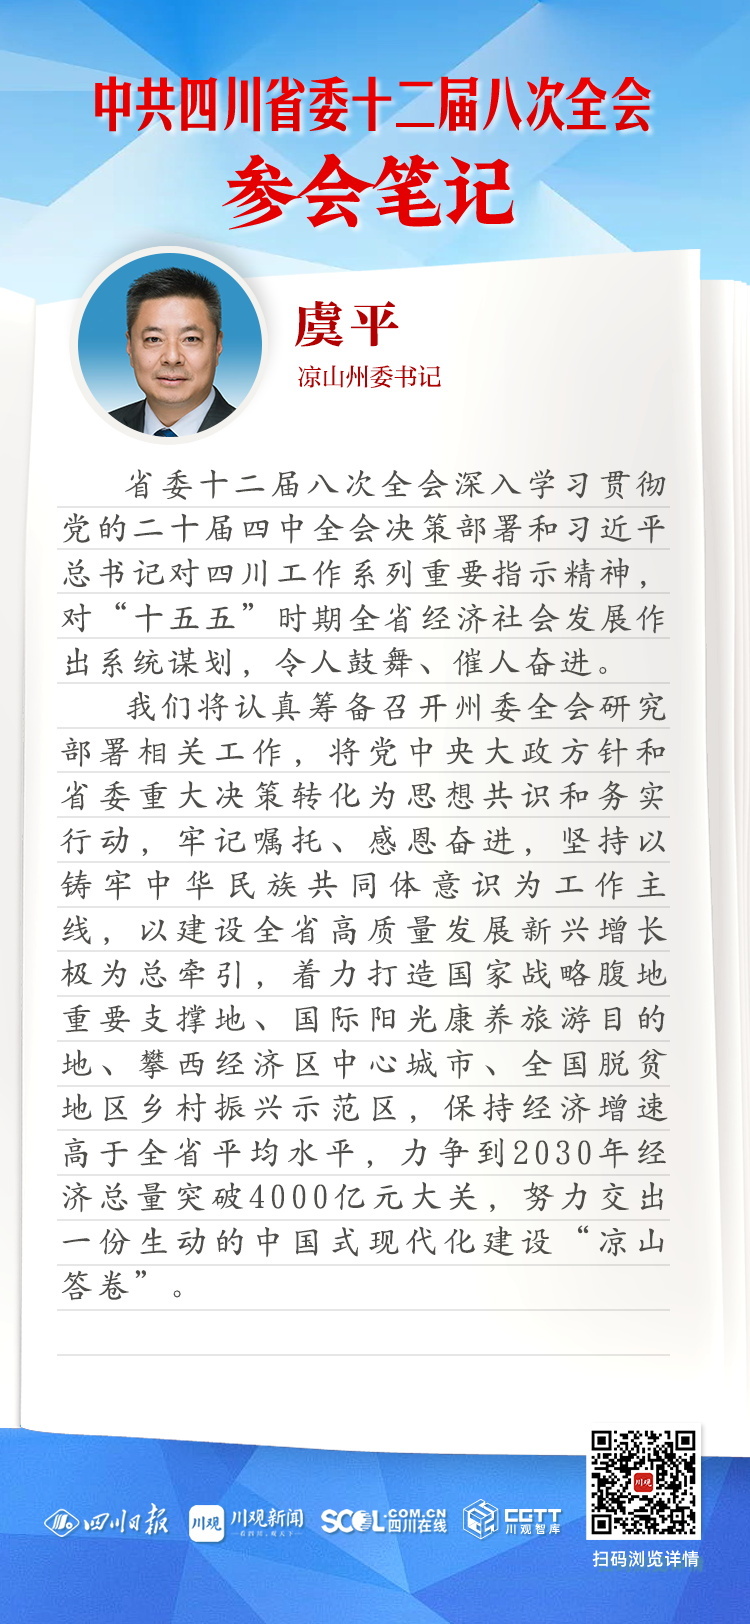 中共四川省委十二届八次全会
参会笔记
虞平
凉山州委书记
省委十二届八次全会深入学习贯彻
党的二十届四中全会决策部署和习近平
总书记对四川工作系列重要指示精神，
对“十五五”时期全省经济社会发展作
出系统谋划，令人鼓舞、催人奋进。
我们将认真筹备召开州委全会研究
部署相关工作，将党中央大政方针和
省委重大决策转化为思想共识和务实
行动，牢记嘱托、感恩奋进，坚持以
铸牢中华民族共同体意识为工作主
线，以建设全省高质量发展新兴增长
极为总牵引，着力打造国家战略腹地
重要支撑地、国际阳光康养旅游目的
地、攀西经济区中心城市、全国脱贫
地区乡村振兴示范区，保持经济增速
高于全省平均水平，力争到2030年经
济总量突破4000亿元大关，努力交出
一份生动的中国式现代化建设“凉山
答卷”。
四川日报
川观
川观新闻
SCOL.COM.CN
四川在线
CGTT
川观智库
川观
扫码浏览详情